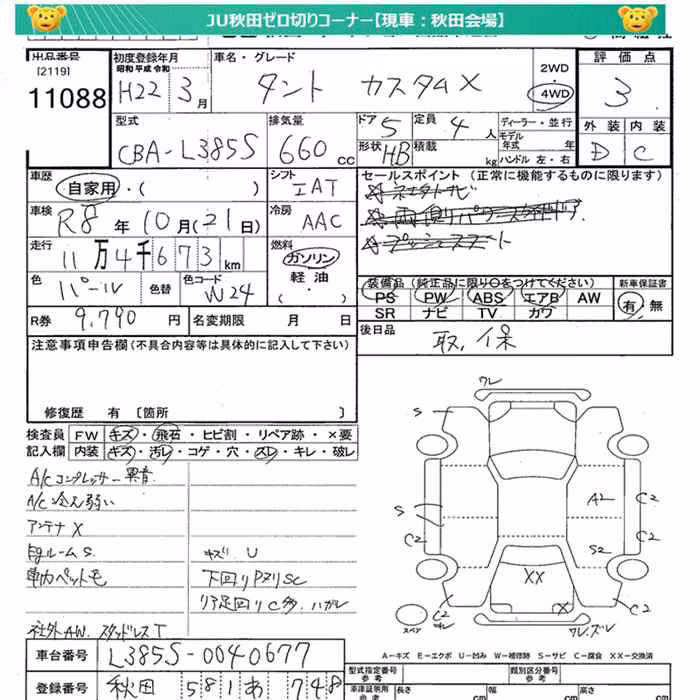 JU秋田ゼロ切りコーナー【現車：秋田会場】
出品番号 初度登録年月 車名・グレード 2WD 評価点
[2119] 昭和 平成 令和
11088 H22年3月 タント カスタムX 4WD 3
型式 排気量 ドア 定員 ディーラー・並行 外装 内装
CBA-L385S 660cc 5 4人 モデル年式 年 D C
形状 HB 積載 kg ハンドル 左・右
車歴 シフト セールスポイント (正常に機能するものに限ります)
自家用・( ) IAT
車検 冷房
R8年10月(21日) AAC
走行 燃料
11万4千673km ガソリン
軽油
色 パール 色替 色コード W24 ( ・ )
装備品 (純正品に限り○をつけてください) 新車保証書
PS PW ABS エアB AW 有・無
SR ナビ TV カワ
R券 9,790円 名変期限 月 日 後日品
取、保
注意事項申告欄(不具合内容等は具体的に記入して下さい)
修復歴 有 [箇所 ]
検査員 FW キズ・飛石・ヒビ割・リペア跡・×要
記入欄 内装 キズ・汚レ・コゲ・穴・スレ・キレ・破レ
A/Cコンプレッサー異音
A/C冷え弱い
アンテナX
S. キズ U
下回りPサリSC
社外AW. スタッドレスT
ワレ
S
A2 C2
S C2
S2
XX
X
C2 C2
スペア
ワレ、ズレ
A－キズ E－エクボ U－凹み W－補修跡 S－サビ C－腐食 XX－交換済
車台番号 L385S-0040677
型式指定番号 類別区分番号
参考
登録番号 秋田 581 あ 748
車検証用 参考 長さ cm 幅 cm 高さ cm